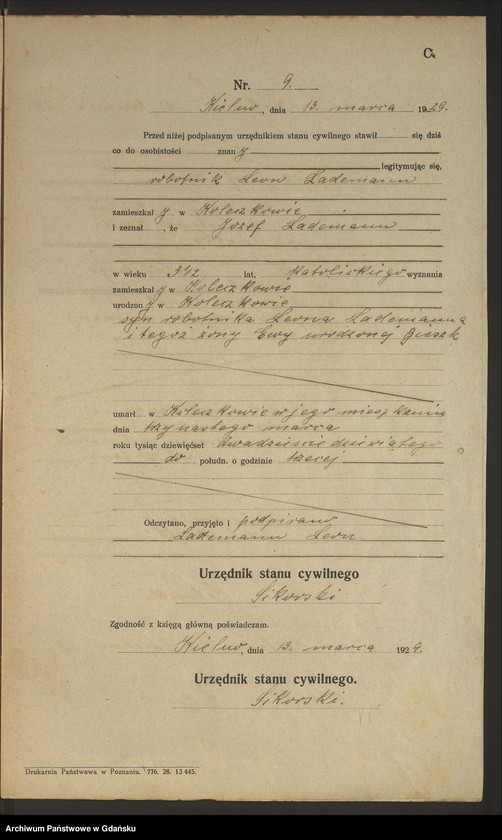 C.
Nr. 9.
Kielno, dnia 13. marca 1929.
Przed niżej podpisanym urzędnikiem stanu cywilnego stawił się dziś
co do osobistości znany
legitymując się,
robotnik Leon Lademann
zamieszkały w Koleczkowie
i zeznał, że Józef Lademann
w wieku 3 1/2 lat, katolickiego wyznania
zamieszkały w Koleczkowie
urodzony w Koleczkowie
syn robotnika Leona Lademanna
i tegoż żony Ewy urodzonej Bieszk
umarł w Koleczkowie w jego mieszkaniu
dnia trzynastego marca
roku tysiąc dziewięćset dwadzieścia dziewiątego
do połudn. o godzinie trzeciej
Odczytano, przyjęto i podpisano
Lademann Leon
Urzędnik stanu cywilnego
Sikorski
Zgodność z księgą główną poświadczam.
Kielno, dnia 13. marca 1929.
Urzędnik stanu cywilnego.
Sikorski.
Drukarnia Państwowa w Poznaniu. 776. 28. 13 445.
Archiwum Państwowe w Gdańsku